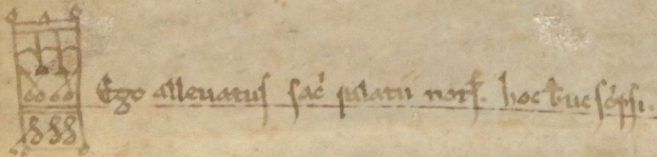 Ego alleuatus sac̄ palatii not̄. hoc b̄ue sc̄psi.